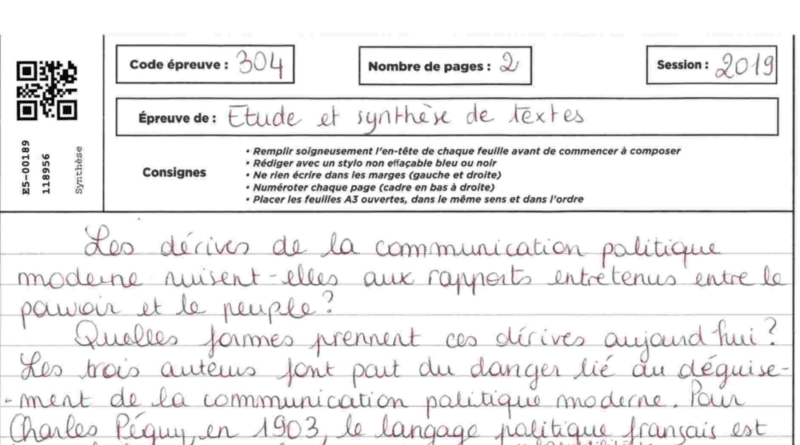 Code épreuve : 304
Nombre de pages : 2
Session : 2019
Épreuve de : Etude et synthèse de textes
Consignes
• Remplir soigneusement l'en-tête de chaque feuille avant de commencer à composer
• Rédiger avec un stylo non effaçable bleu ou noir
• Ne rien écrire dans les marges (gauche et droite)
• Numéroter chaque page (cadre en bas à droite)
• Placer les feuilles A3 ouvertes, dans le même sens et dans l'ordre
E5-00189
118956
Synthèse
Les dérives de la communication politique
moderne nuisent-elles aux rapports entretenus entre le
pouvoir et le peuple?
Quelles formes prennent ces dérives aujourd'hui?
Les trois auteurs font part du danger lié au déguise-
-ment de la communication politique moderne. Pour
Charles Péguy, en 1903, le langage politique français est